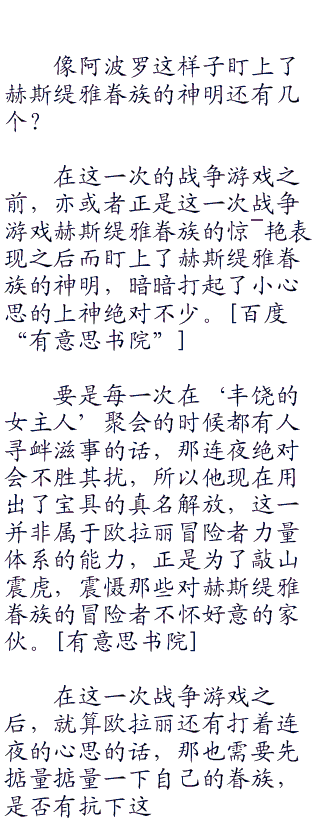 像阿波罗这样子盯上了
赫斯缇雅眷族的神明还有几
个?
在这一次的战争游戏之
前，亦或者正是这一次战争
游戏赫斯缇雅眷族的惊¯艳表
现之后而盯上了赫斯缇雅眷
族的神明，暗暗打起了小心
思的上神绝对不少。[百度
“有意思书院”]
要是每一次在‘丰饶的
女主人’聚会的时候都有人
寻衅滋事的话，那连夜绝对
会不胜其扰，所以他现在用
出了宝具的真名解放，这一
并非属于欧拉丽冒险者力量
体系的能力，正是为了敲山
震虎，震慑那些对赫斯缇雅
眷族的冒险者不怀好意的家
伙。[有意思书院]
在这一次战争游戏之
后，就算欧拉丽还有打着连
夜的心思的话，那也需要先
掂量掂量一下自己的眷族，
是否有抗下这